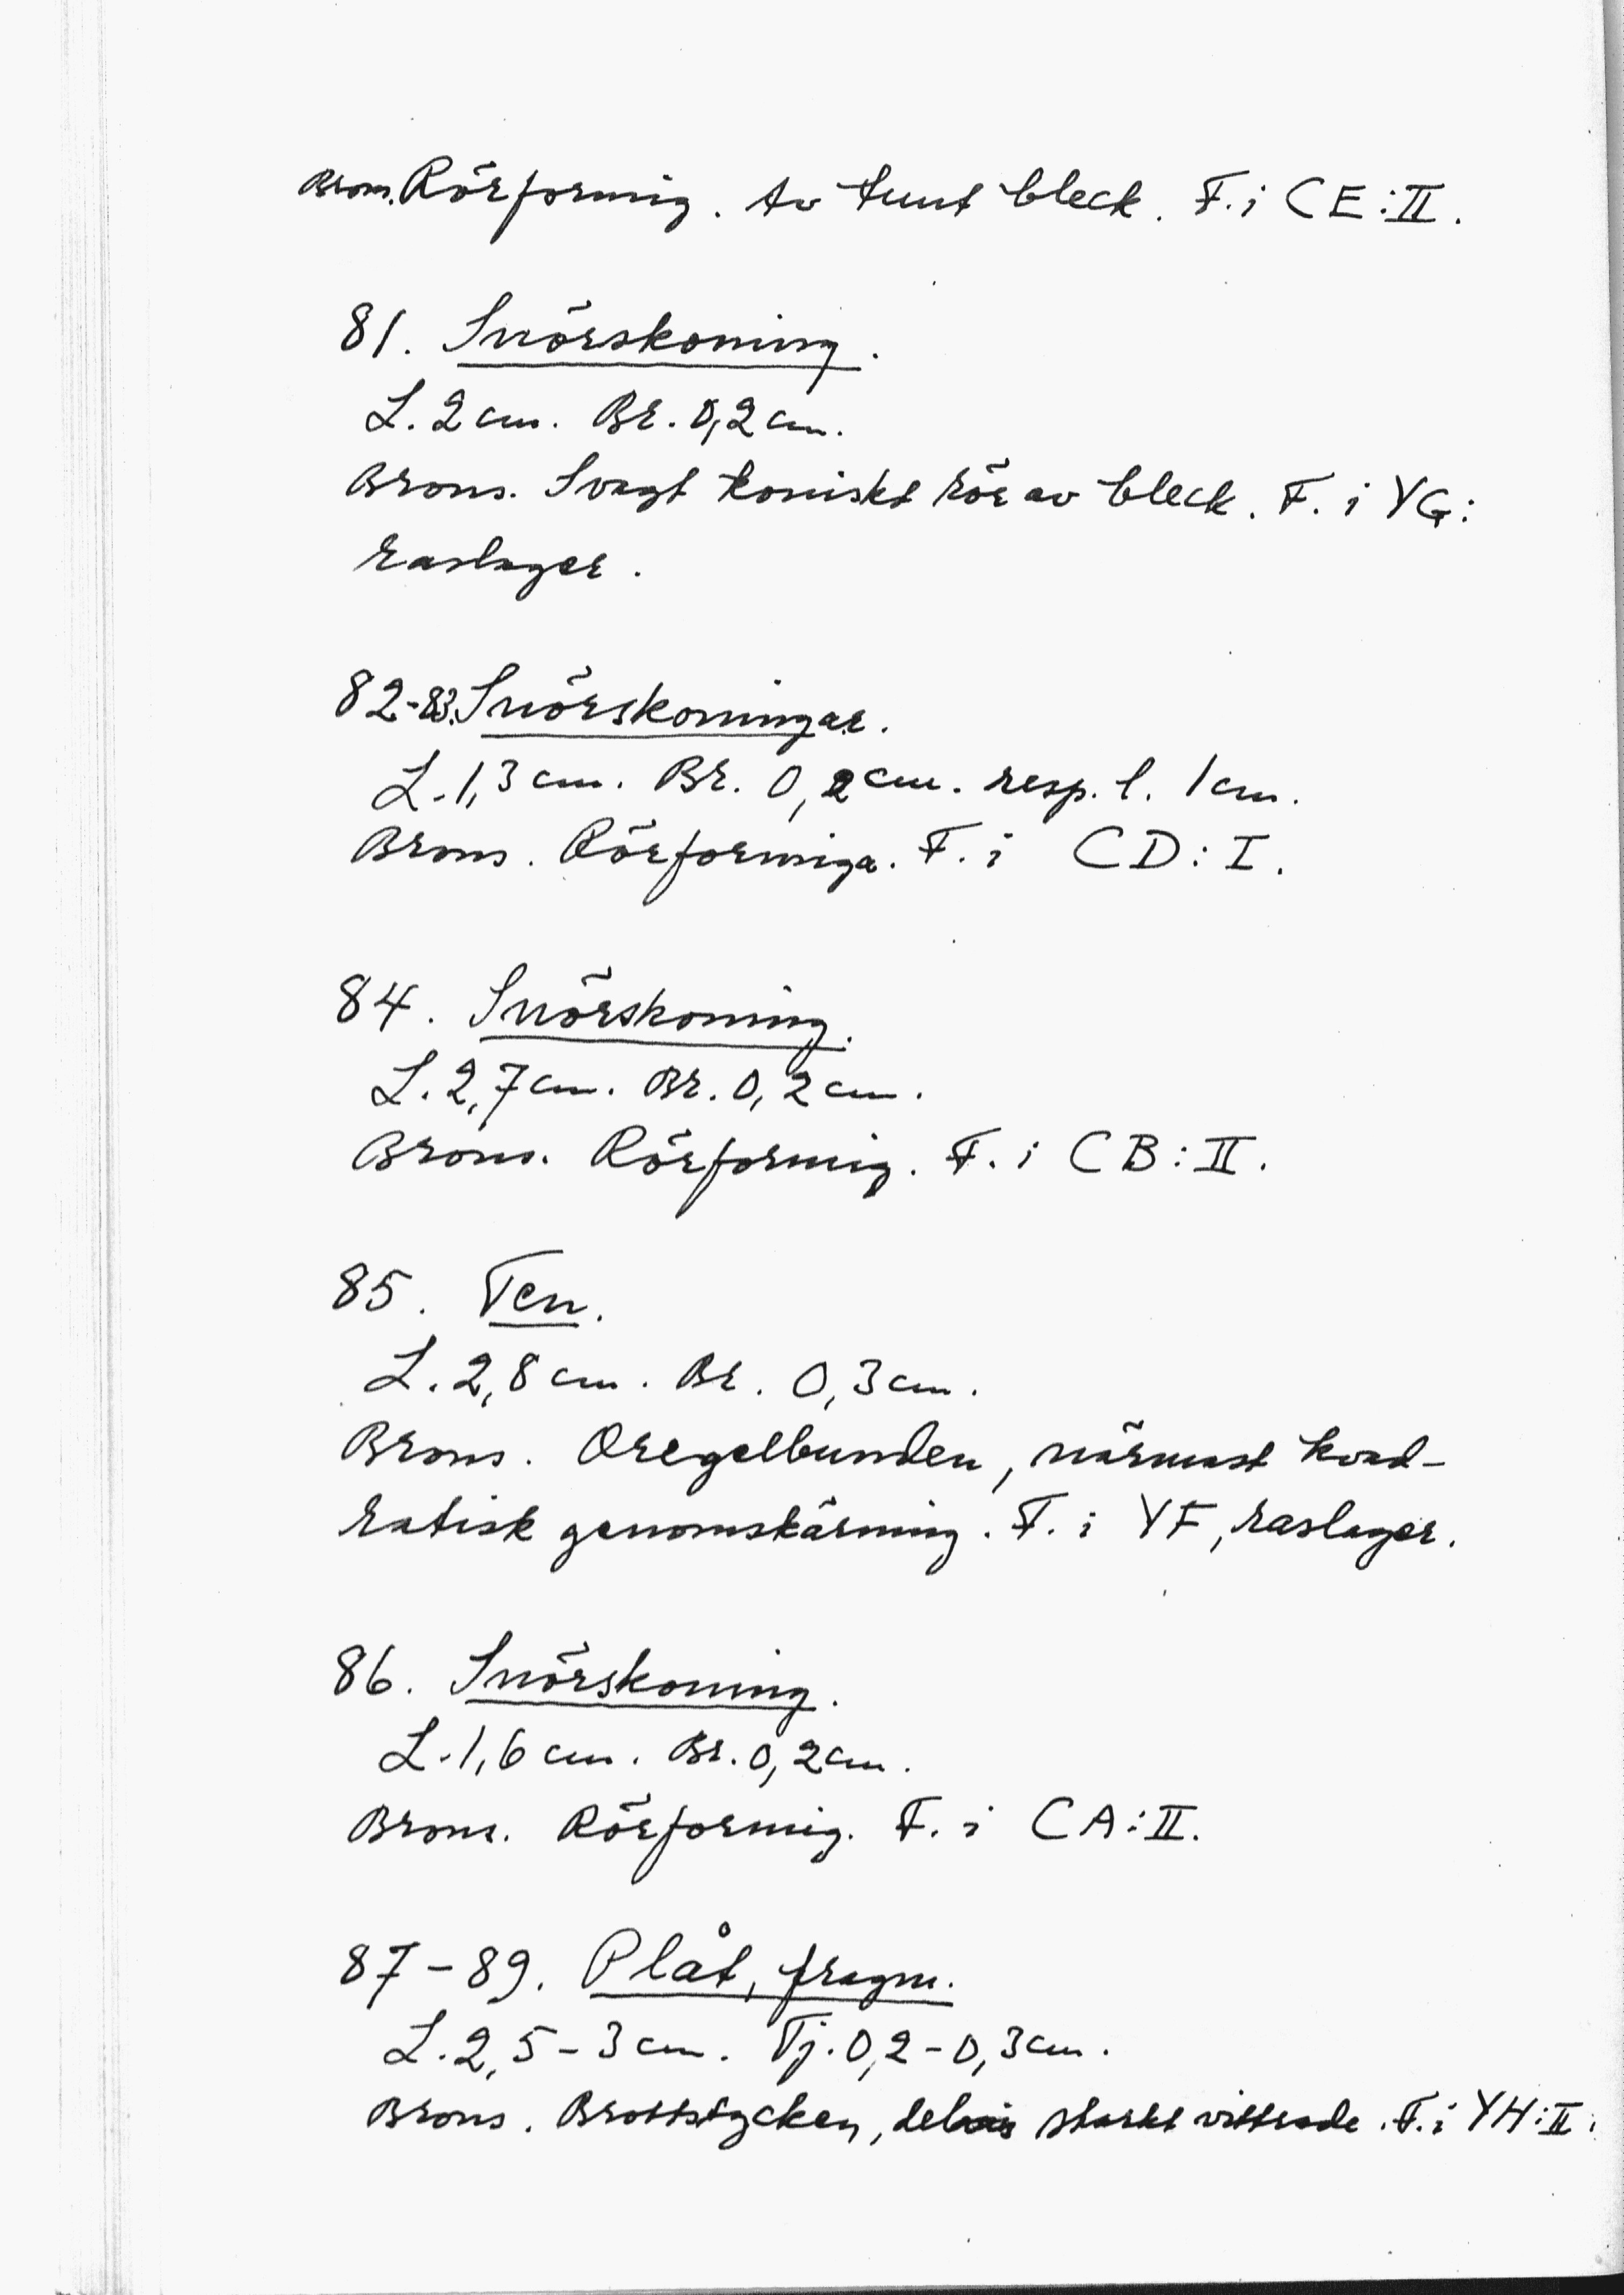 Brons. Rörformig. Av tunt bleck. F. i CE:II.
81. Snörskoning.
L. 2 cm. Br. 0,2 cm.
Brons. Svagt koniskt rör av bleck. F. i YG:
raslager.
82-83. Snörskoningar.
L. 1,3 cm. Br. 0,2 cm. resp. l. 1 cm.
Brons. Rörformiga. F. i CD: I.
84. Snörskoning.
L. 2,7 cm. Br. 0,2 cm.
Brons. Rörformig. F. i CB:II.
85. Ten.
L. 2,8 cm. Br. 0,3 cm.
Brons. Oregelbunden, närmast kvad-
ratisk genomskärning. F. i YF, raslager.
86. Snörskoning.
L. 1,6 cm. Br. 0,2 cm.
Brons. Rörformig. F. i CA:II.
87-89. Plåt, fragm.
L. 2,5-3 cm. Tj. 0,2-0,3 cm.
Brons. Brottstycken, delvis starkt vittrade. F. i YH:II.